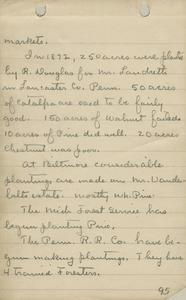 markets.
In 1892, 250 acres were planted
by R. Douglas for Mr. Landreth
in Lancaster Co. Penn. 50 acres
of Catalpa are said to be fairly
good. 150 acres of Walnut failed
10 acres of Pine did well. 20 acres
Chestnut was poor.
At Biltmore considerable
plantings are made on Mr. Vander-
bilts estate. mostly Wh. Pine.
The Mich Forest Service has
begun planting Pine.
The Penn. R. R. Co. have be-
gun making plantings. They have
4 trained Foresters.
95